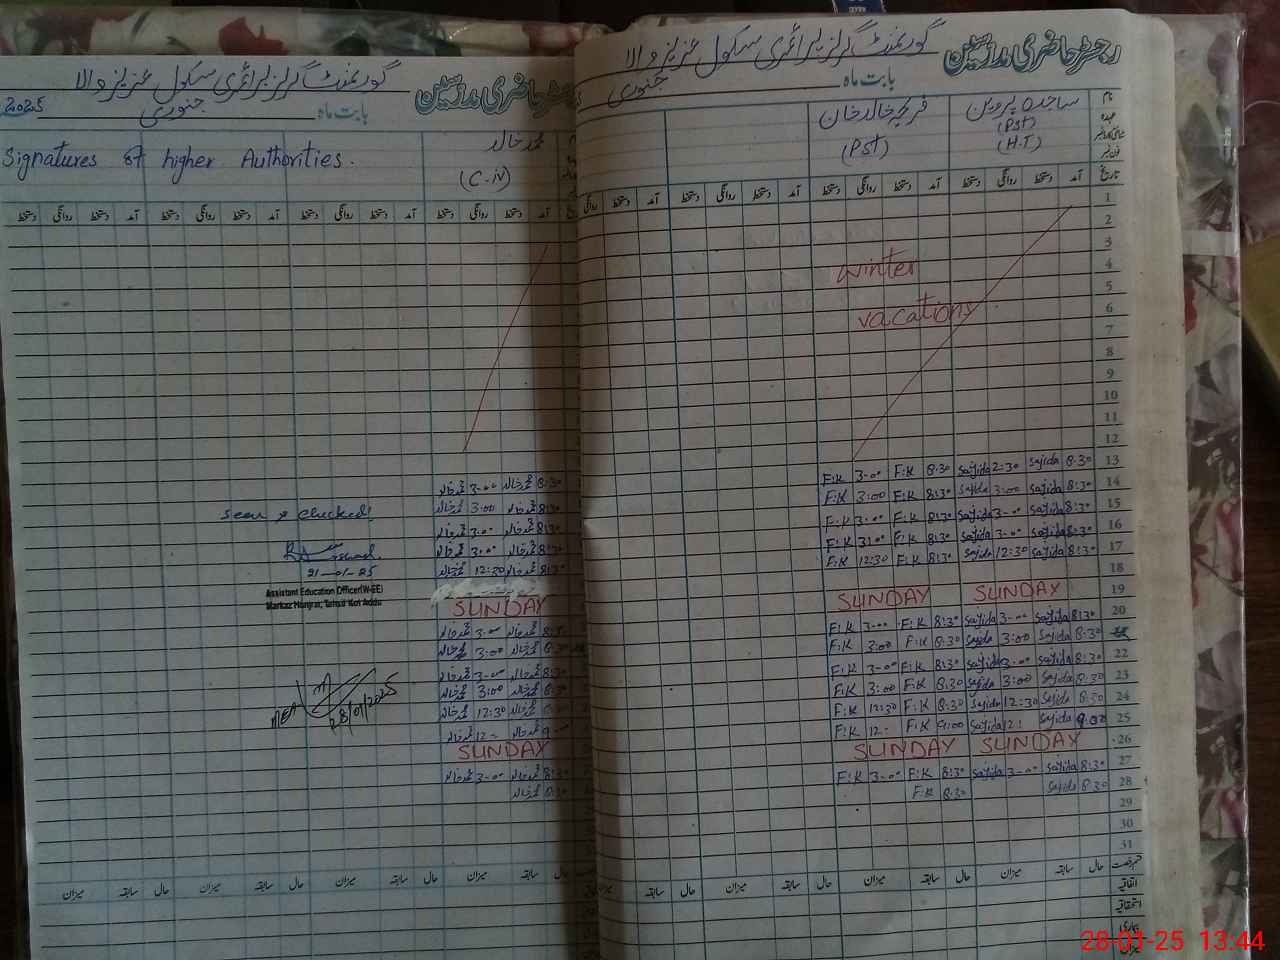 رجسٹر حاضری مدرسین گورنمنٹ گرلز پرائمری سکول عزیز والا
بابت ماہ جنوری
نام ساجدہ پروین فریحہ خالد خان
عہدہ (PST) (PST)
(H.T)
تاریخ آمد دستخط روانگی دستخط آمد دستخط روانگی دستخط آمد دستخط روانگی
1
2
3
4 winter
5
6 vacations
7
8
9
10
11
12
13 8.30 Sajida 2:30 Sajida 8.30 F.K 3-00 F.K
14 8:30 Sajida 3:00 Sajida 8:30 F.K 3:00 F.K
15 8:30 Sajida 3-00 Sajida 8:30 F.K 3-00 F.K
16 8:30 Sajida 3-00 Sajida 8:30 F.K 3:00 F.K
17 8:30 Sajida 12:30 Sajida 8:30 F.K 12:30 F.K
18
19 SUNDAY SUNDAY
20 8:30 Sajida 3-00 Sajida 8:30 F.K 3-00 F.K
8:30 Sajida 3:00 Sajida 8:30 F.K 3:00 F.K
22 8:30 Sajida 3-00 Sajida 8:30 F.K 3-00 F.K
23 8:30 Sajida 3:00 Sajida 8:30 F.K 3:00 F.K
24 8:30 Sajida 12:30 Sajida 8:30 F.K 12:30 F.K
25 9:00 Sajida 12: Sajida 9:00 F.K 12- F.K
26 SUNDAY SUNDAY
27 8:30 Sajida 3-00 Sajida 8:30 F.K 3-00 F.K
28 8:30 Sajida 8:30 F.K
29
30
31
حال سابقہ میزان حال سابقہ میزان حال سابقہ میزان
اتفاقیہ
استحقاقیہ
بیماری
میزان
رجسٹر حاضری مدرسین گورنمنٹ گرلز پرائمری سکول عزیز والا
بابت ماہ جنوری 2025
محمد خالد
(C-IV)
Signatures of higher Authorities.
آمد دستخط روانگی دستخط آمد دستخط روانگی دستخط آمد دستخط روانگی دستخط
8:30 محمد خالد 3-00 محمد خالد
8:30 محمد خالد 3:00 محمد خالد
8:30 محمد خالد 3-00 محمد خالد
8:30 محمد خالد 3:00 محمد خالد
8:30 محمد خالد 12:30 محمد خالد
SUNDAY
8:30 محمد خالد 3-00 محمد خالد
8:30 محمد خالد 3:00 محمد خالد
8:30 محمد خالد 3-00 محمد خالد
8:30 محمد خالد 3:00 محمد خالد
محمد خالد 12:30 محمد خالد
9 محمد خالد 12- محمد خالد
SUNDAY
8:30 محمد خالد 3-00 محمد خالد
8:30 محمد خالد
Seen & checked
21-01-25
Assistant Education Officer(W-EE)
Markaz Hanjrai, Tehsil Kot Addu
MEA
28/01/2025
حال سابقہ میزان حال سابقہ میزان حال سابقہ میزان حال سابقہ میزان
28-01-25 13:44